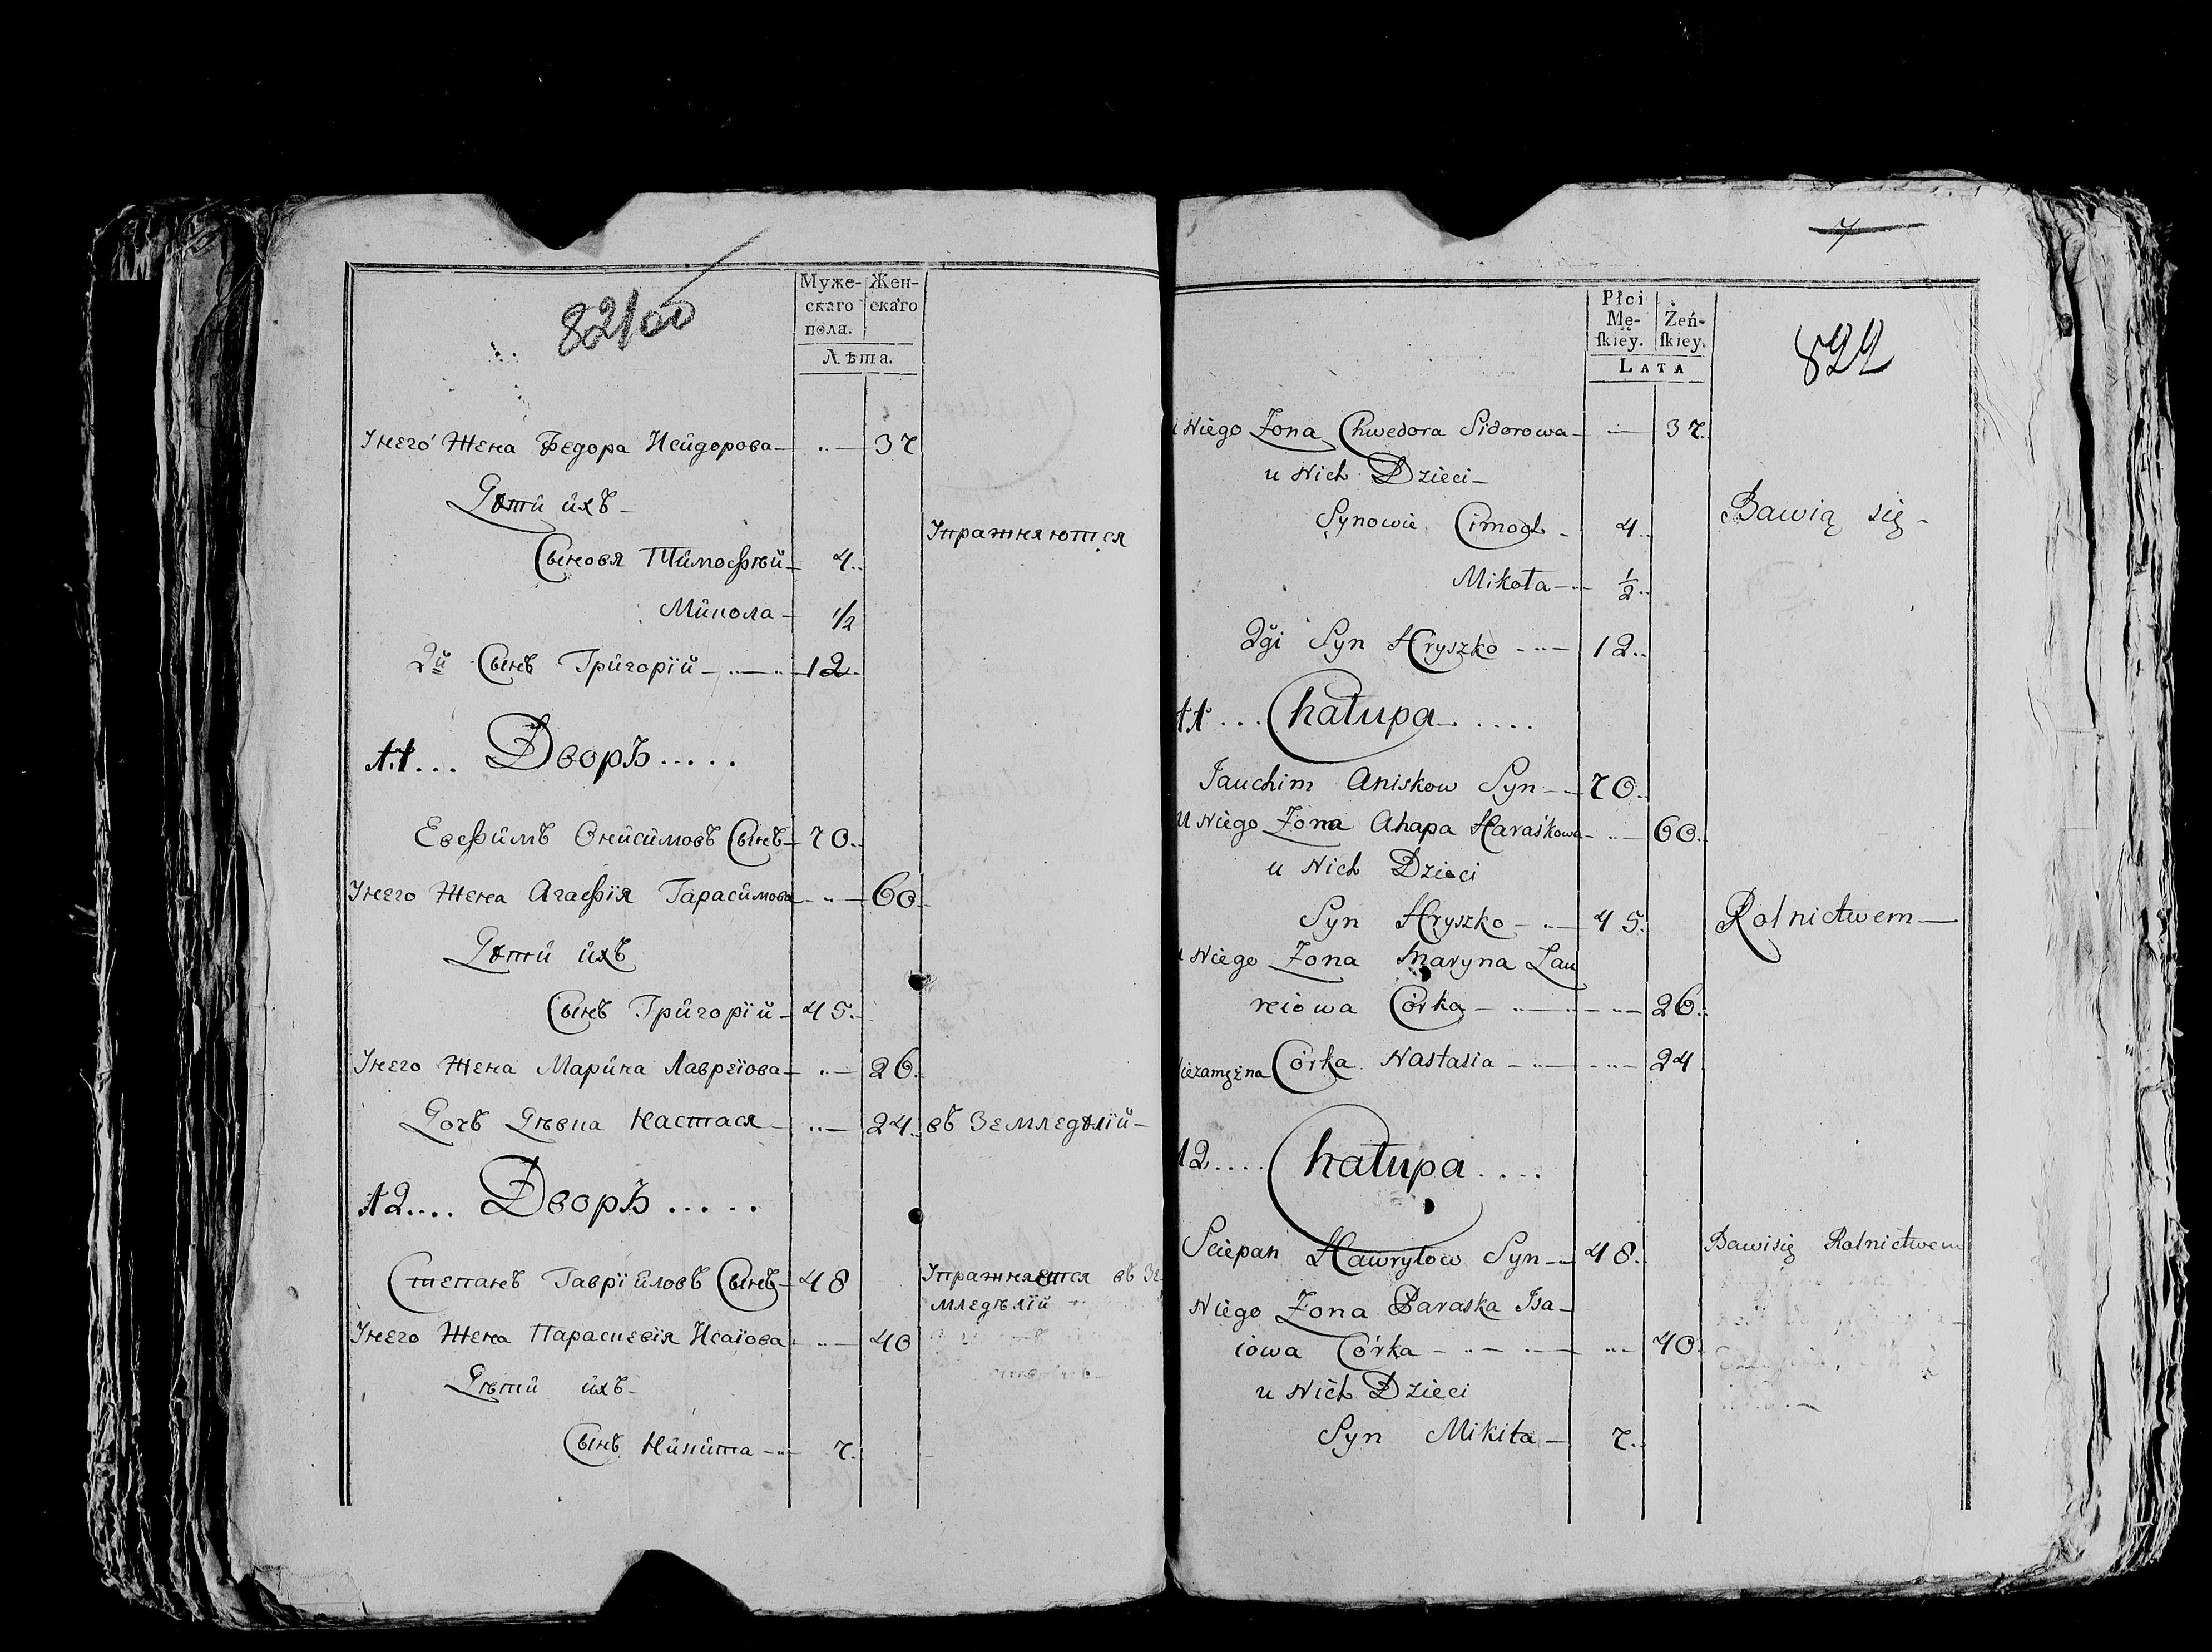 82100
Муже-
скаго
пола.
Жен-
скаго
Лѣта.
Унего Жена Ѳедора Исидорова — 37
Дѣти ихъ
Сыновя Тимофѣй 4
Упражняются
Микола 1/2
2й Сынъ Григорій 12
11... Дворъ.....
Евфимъ Онисимовъ Сынъ 70
Унего Жена Агафія Гарасимова — 60
Дѣти ихъ
Сынъ Григорій 45
Унего Жена Марина Лавреіова — 26
Дочь Дѣвка Настася — 24 въ Земледѣлій
12.... Дворъ.....
Степанъ Гавріиловъ Сынъ 48 Упражняется въ Зе
мледѣлій
Унего Жена Параскевія Исаіова — 40
Дѣти ихъ
Сынъ Никита 7
7
Płci
Mę-
ſkiey.
Żeń-
ſkiey.
LATA
822
u Niego Żona Chwedora Sidorowa — 37
u Nich Dzieci
Synowie Cimoch 4 Bawią się
Mikoła 1/2
2gi Syn Hryszko 12
11... Chałupa.....
Jauchim Aniskow Syn 70
U Niego Żona Ahapa Haraśkowa — 60
u Nich Dzieci
Syn Hryszko 45 Rolnictwem
u Niego Żona Maryna Lau
reiowa Córka — 26
Niezamężna Córka Nastasia — 24
12.... Chałupa....
Sciepan Hawryłow Syn 48 Bawi się Rolnictwem
Niego Żona Paraska Isa-
iowa Córka — 40
u Nich Dzieci
Syn Mikita 7